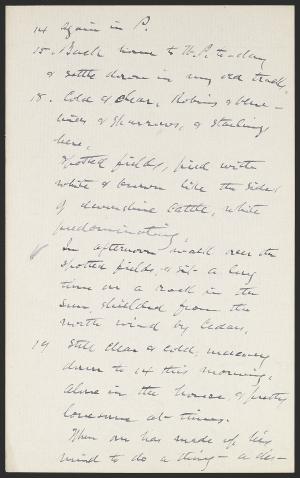 14 Again in P.
15. Back home to W.P. to-day
& settle down in my old tracks.
18. Cold & clear, Robins & blue-
birds & Sparrows, & starlings
here,
Spotted fields, pied with
white & brown like the sides
of devonshire cattle, white
predominating.
In afternoon walk over the
spotted fields, & sit a long
time on a rock in the
sun, shielded from the
north wind by Cedars,
19 Still clear & cold; mercury
down to 14 this morning.
alone in the house, & pretty
lonesome at times.
When one has made up his
mind to do a thing - a des-